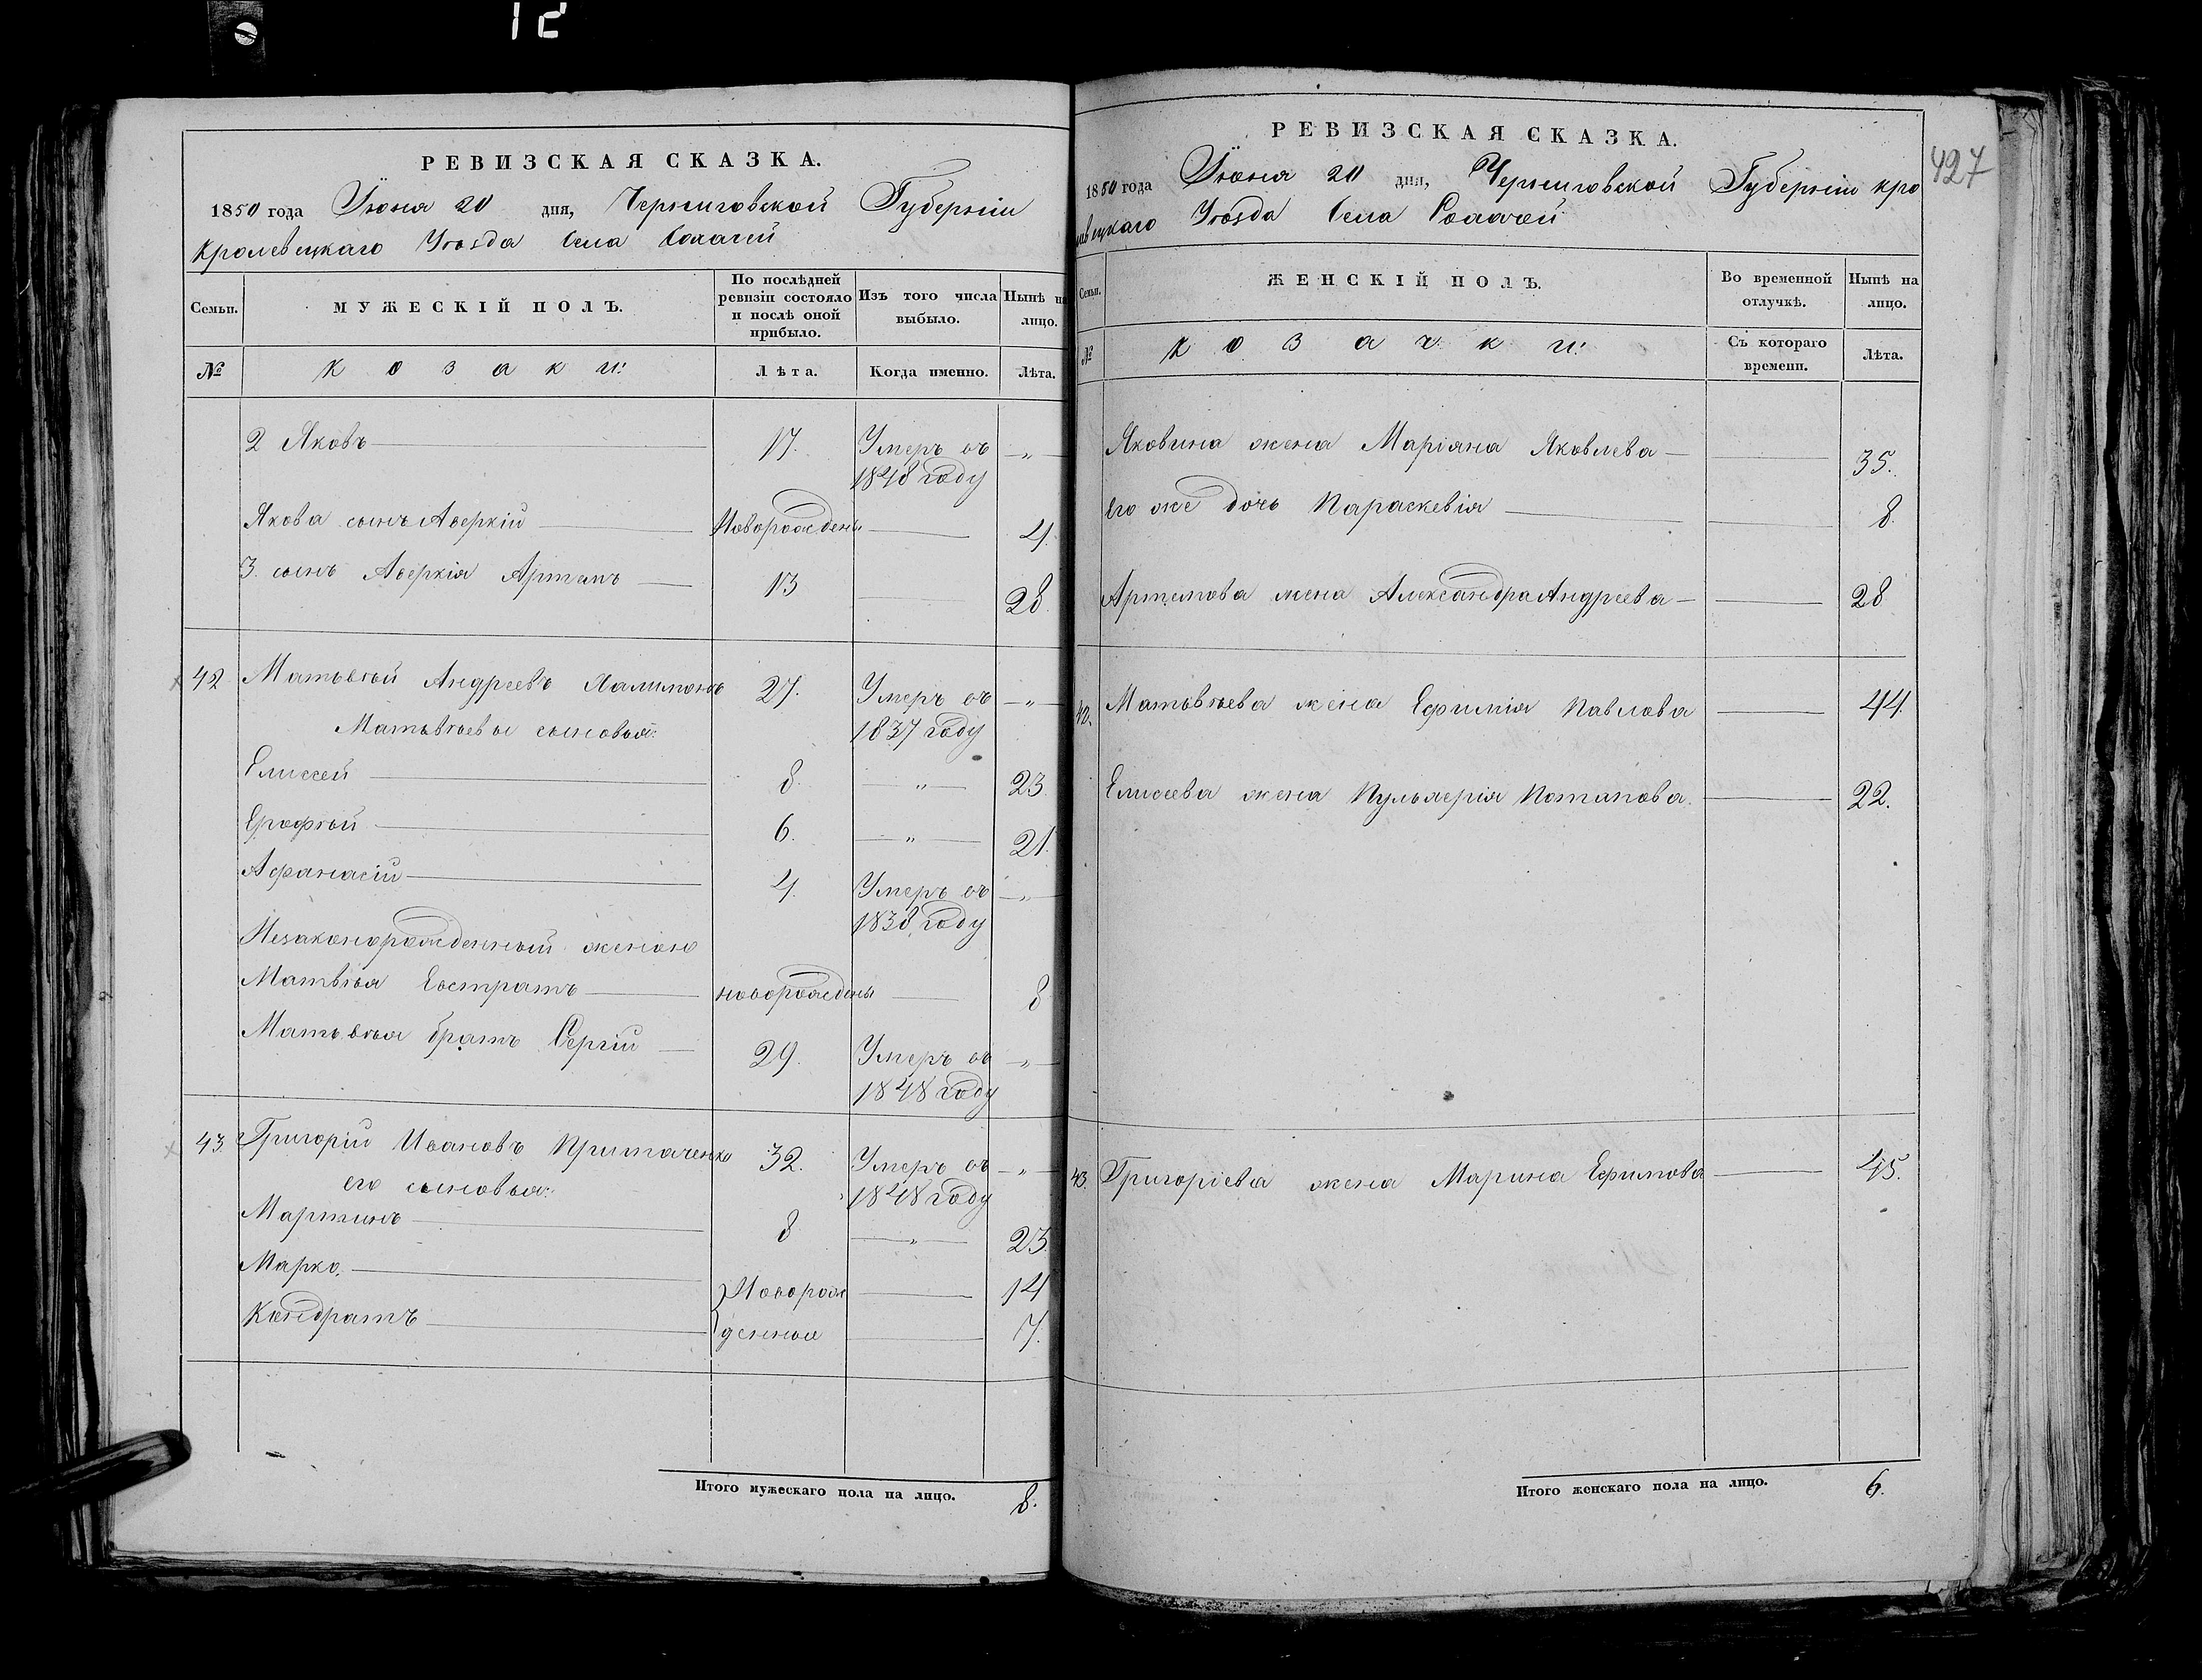 12
РЕВИЗСКАЯ СКАЗКА.
1850 года Іюня 20 дня, Черниговской Губерніи
Кролевецкаго Уѣзда Села
Семьи.
МУЖЕСКІЙ ПОЛЪ.
По послѣдней ревизіи состояло и послѣ оной прибыло.
Изъ того числа выбыло.
Нынѣ на лицо.
№
Козаки:
Лѣта.
Когда именно.
Лѣта.
2 Яковъ 17. Умеръ въ „
1848 году
Якова сынъ Аверкій Новорожденъ 4.
3. сынъ Аверкія Артемъ 13 28
42 Матьвѣй Андреевъ 27. Умеръ въ „
Матьвѣевы сыновья: 1837 году
Елисей 8. „ 23
Ерофѣй 6. „ 21.
Афанасій 4. Умеръ въ „
1838 году
Незаконорожденный женою
Матвѣя Евстратъ новорожденъ 8
Матьвѣя братъ Сергій 29. Умеръ въ „
1848 году
43. Григорій Ивановъ Примаченко 32. Умеръ въ „
его сыновья: 1848 году
Мартинъ 8 „ 23.
Марко. Новорож 14
Кондратъ денные 7.
Итого мужескаго пола на лицо. 8.
427
РЕВИЗСКАЯ СКАЗКА.
1850 года Іюня 20 дня, Черниговской Губерніи Кро
левецкаго Уѣзда Села
Семьи.
ЖЕНСКІЙ ПОЛЪ.
Во временной отлучкѣ.
Нынѣ на лицо.
№
Козачки:
Съ котораго времени.
Лѣта.
Яковина жена Маріяна Яковлева 35.
Его же дочь Параскевія 8.
Артемова жена Александра Андреева 28
42. Матьвѣева жена Ефимія Павлова 44.
Елисеева жена Пульхерія Потапова. 22.
43. Григоріева жена Марина Ефимова 45.
Итого женскаго пола на лицо. 6.